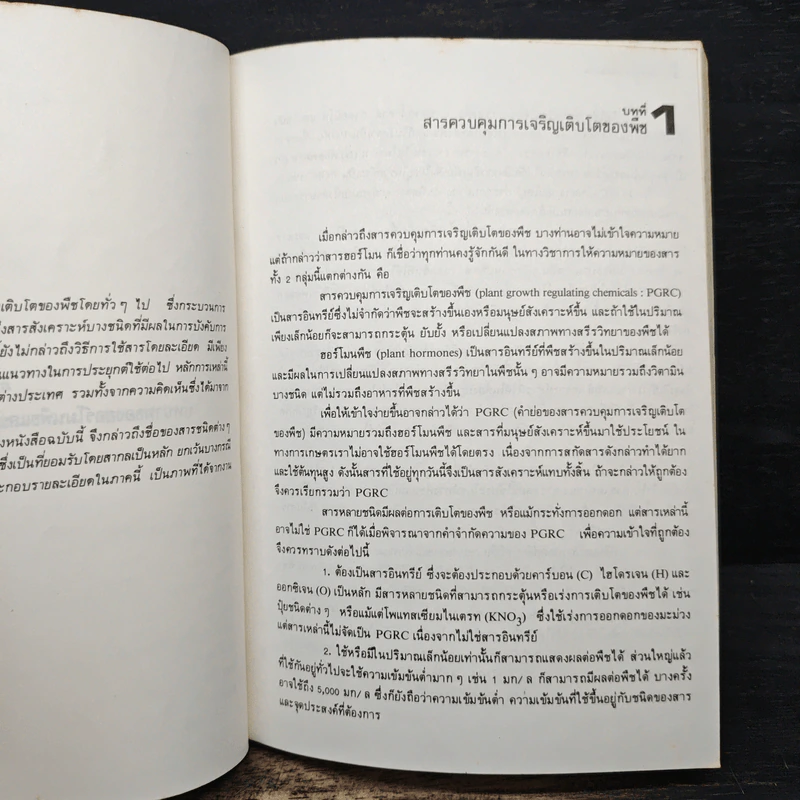 เติบโตของพืชโดยทั่ว ๆ ไป ซึ่งกระบวนการ
งสารสังเคราะห์บางชนิดที่มีผลในการบังคับการ
ยังไม่กล่าวถึงวิธีการใช้สารโดยละเอียด มีเพียง
แนวทางในการประยุกต์ใช้ต่อไป หลักการเหล่านี้
ต่างประเทศ รวมทั้งจากความคิดเห็นซึ่งได้มาจาก
งหนังสือฉบับนี้ จึงกล่าวถึงชื่อของสารชนิดต่างๆ
ซึ่งเป็นที่ยอมรับโดยสากลเป็นหลัก ยกเว้นบางกรณี
ะกอบรายละเอียดในภาคนี้ เป็นภาพที่ได้จากงาน
บทที่ 1
สารควบคุมการเจริญเติบโตของพืช
เมื่อกล่าวถึงสารควบคุมการเจริญเติบโตของพืช บางท่านอาจไม่เข้าใจความหมาย
แต่ถ้ากล่าวว่าสารฮอร์โมน ก็เชื่อว่าทุกท่านคงรู้จักกันดี ในทางวิชาการให้ความหมายของสาร
ทั้ง 2 กลุ่มนี้แตกต่างกัน คือ
สารควบคุมการเจริญเติบโตของพืช (plant growth regulating chemicals : PGRC)
เป็นสารอินทรีย์ซึ่งไม่จำกัดว่าพืชจะสร้างขึ้นเองหรือมนุษย์สังเคราะห์ขึ้น และถ้าใช้ในปริมาณ
เพียงเล็กน้อยก็จะสามารถกระตุ้น ยับยั้ง หรือเปลี่ยนแปลงสภาพทางสรีรวิทยาของพืชได้
ฮอร์โมนพืช (plant hormones) เป็นสารอินทรีย์ที่พืชสร้างขึ้นในปริมาณเล็กน้อย
และมีผลในการเปลี่ยนแปลงสภาพทางสรีรวิทยาในพืชนั้น ๆ อาจมีความหมายรวมถึงวิตามิน
บางชนิด แต่ไม่รวมถึงอาหารที่พืชสร้างขึ้น
เพื่อให้เข้าใจง่ายขึ้นอาจกล่าวได้ว่า PGRC (คำย่อของสารควบคุมการเจริญเติบโต
ของพืช) มีความหมายรวมถึงฮอร์โมนพืช และสารที่มนุษย์สังเคราะห์ขึ้นมาใช้ประโยชน์ ใน
ทางการเกษตรเราไม่อาจใช้ฮอร์โมนพืชได้โดยตรง เนื่องจากการสกัดสารดังกล่าวทำได้ยาก
และใช้ต้นทุนสูง ดังนั้นสารที่ใช้อยู่ทุกวันนี้จึงเป็นสารสังเคราะห์แทบทั้งสิ้น ถ้าจะกล่าวให้ถูกต้อง
จึงควรเรียกรวมว่า PGRC
สารหลายชนิดมีผลต่อการเติบโตของพืช หรือแม้กระทั่งการออกดอก แต่สารเหล่านี้
อาจไม่ใช่ PGRC ก็ได้เมื่อพิจารณาจากคำจำกัดความของ PGRC เพื่อความเข้าใจที่ถูกต้อง
จึงควรทราบดังต่อไปนี้
1. ต้องเป็นสารอินทรีย์ ซึ่งจะต้องประกอบด้วยคาร์บอน (C) ไฮโดรเจน (H) และ
ออกซิเจน (O) เป็นหลัก มีสารหลายชนิดที่สามารถกระตุ้นหรือเร่งการเติบโตของพืชได้ เช่น
ปุ๋ยชนิดต่าง ๆ หรือแม้แต่โพแทสเซียมไนเตรท (KNO3) ซึ่งใช้เร่งการออกดอกของมะม่วง
แต่สารเหล่านี้ไม่จัดเป็น PGRC เนื่องจากไม่ใช่สารอินทรีย์
2. ใช้หรือมีในปริมาณเล็กน้อยเท่านั้นก็สามารถแสดงผลต่อพืชได้ ส่วนใหญ่แล้ว
ที่ใช้กันอยู่ทั่วไปจะใช้ความเข้มข้นต่ำมาก ๆ เช่น 1 มก/ ล ก็สามารถมีผลต่อพืชได้ บางครั้ง
อาจใช้ถึง 5,000 มก/ ล ซึ่งก็ยังถือว่าความเข้มข้นต่ำ ความเข้มข้นที่ใช้ขึ้นอยู่กับชนิดของสาร
และจุดประสงค์ที่ต้องการ